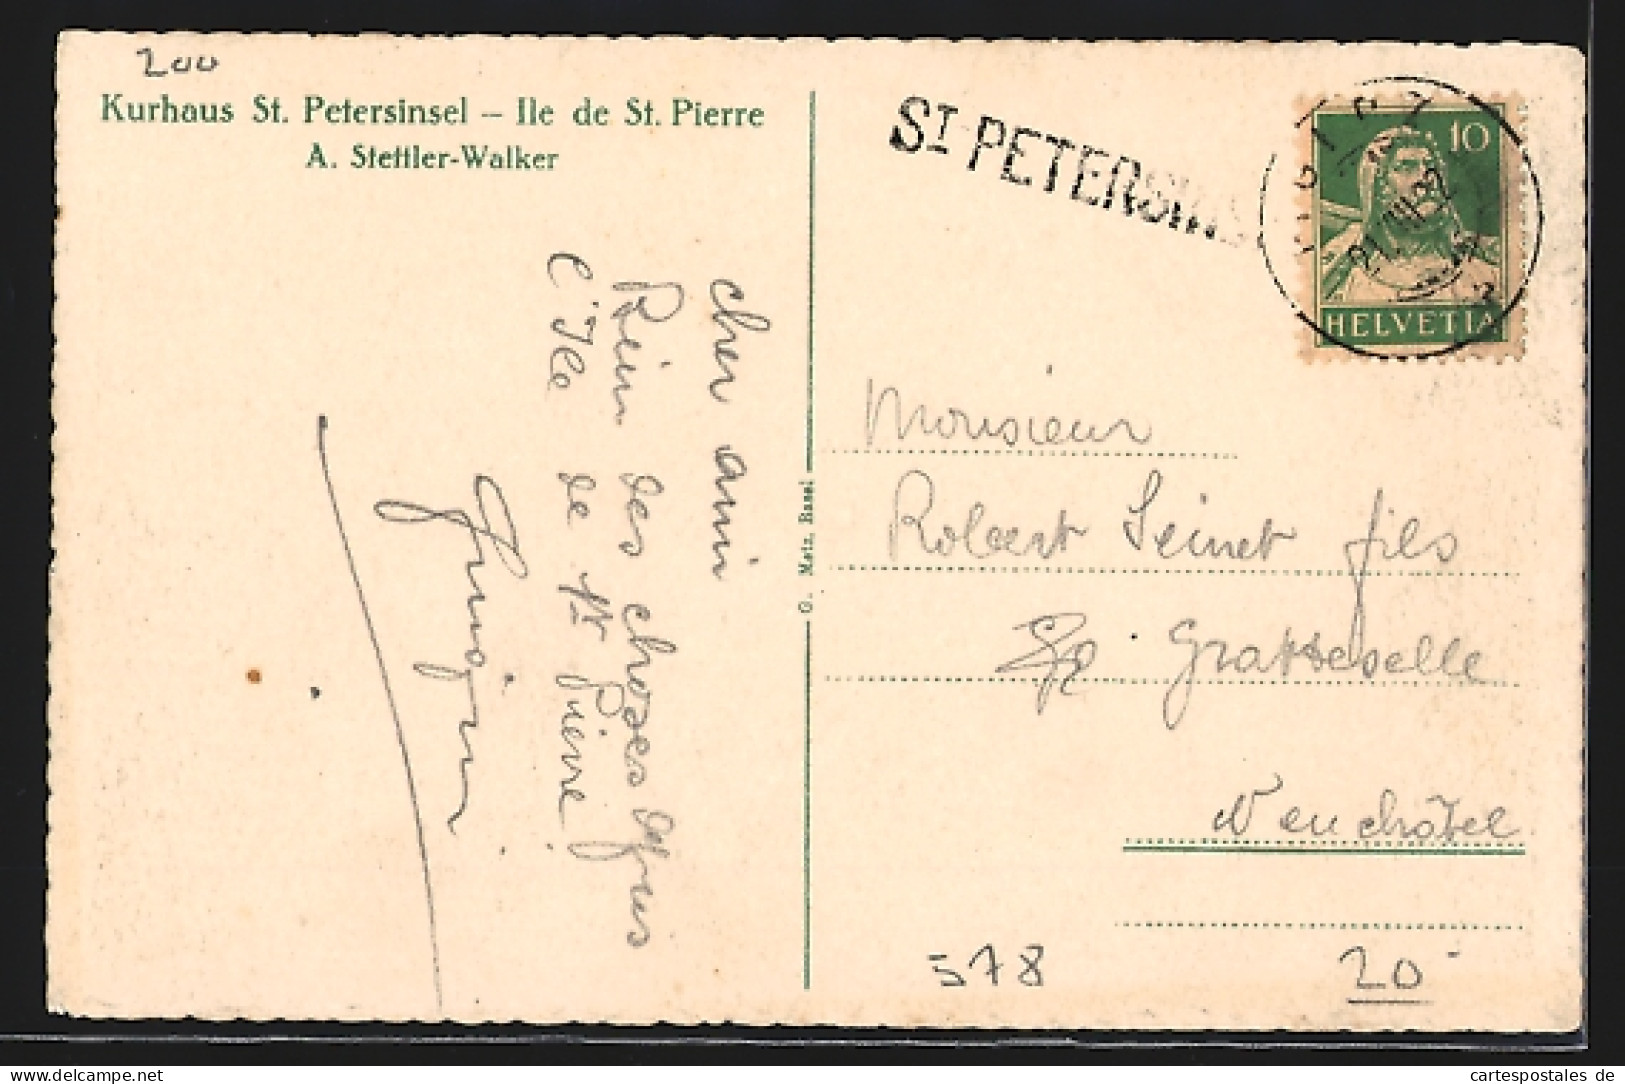 200
Kurhaus St. Petersinsel – Ile de St. Pierre
A. Stettler-Walker
cher ami
Rein des choses depuis
l'Ile de St Pierre
G. Metz, Basel
ST PETERSINS
10
HELVETIA
21.VIII
Monsieur
Robert Seinet fils
Neuchâtel
578
20
www.delcampe.net
cartespostales de